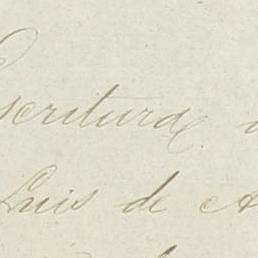 Escritura
Luis de A